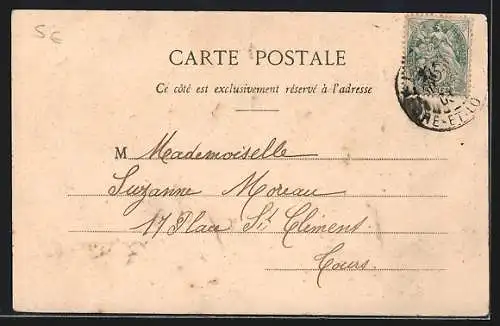 5€
CARTE POSTALE
Ce côté est exclusivement réservé à l'adresse
M Mademoiselle
Suzanne Moreau
17 Place St Clément
Tours